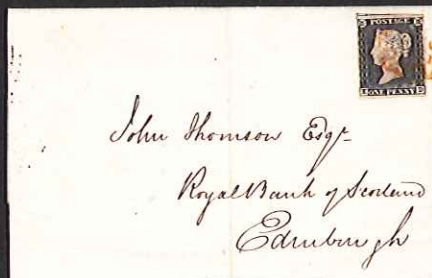 POSTAGE
ONE PENNY
John Thomson Esqr
Royal Bank of Scotland
Edinburgh